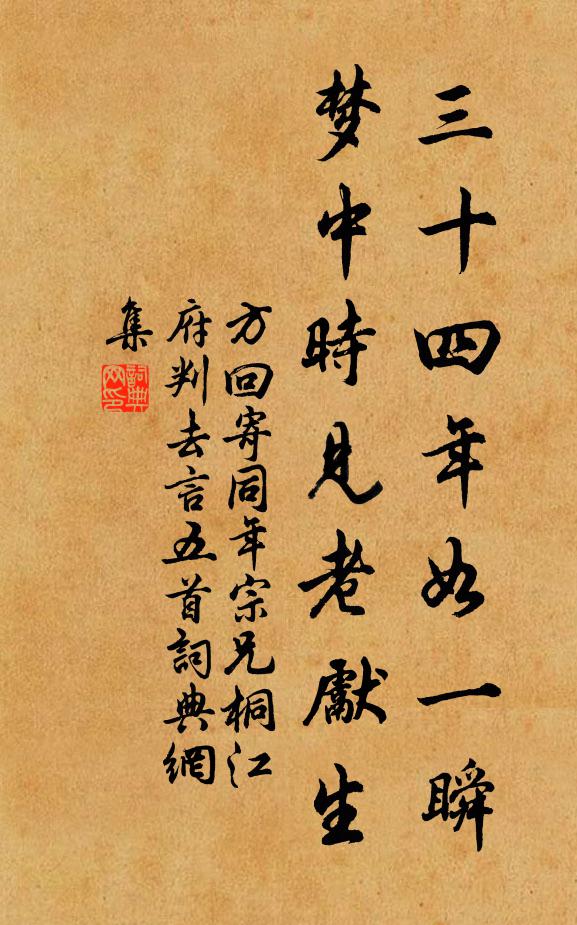 三十四年如一瞬
梦中時見老獻生
方回寄同年宗兄桐江
府判去言五首詞典網
集
詞典
网印